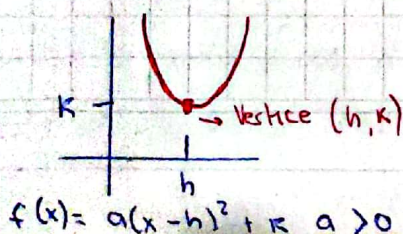 K
→ Vertice (h, K)
h
f(x) = a(x-h)² + K a > 0